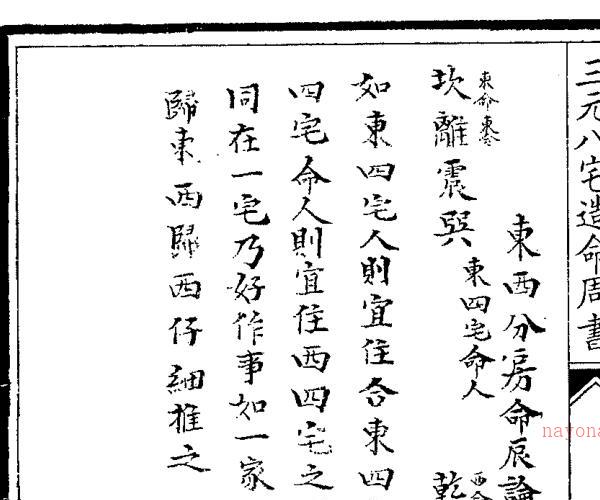 三元八宅造命周書
東西分房命辰論
東命東
坎離震巽 東四宅命人
西命
乾
如東四宅人則宜住合東四
四宅命人則宜住西四宅之
同在一宅乃好作事如一家
歸東西歸西仔細推之
nayona